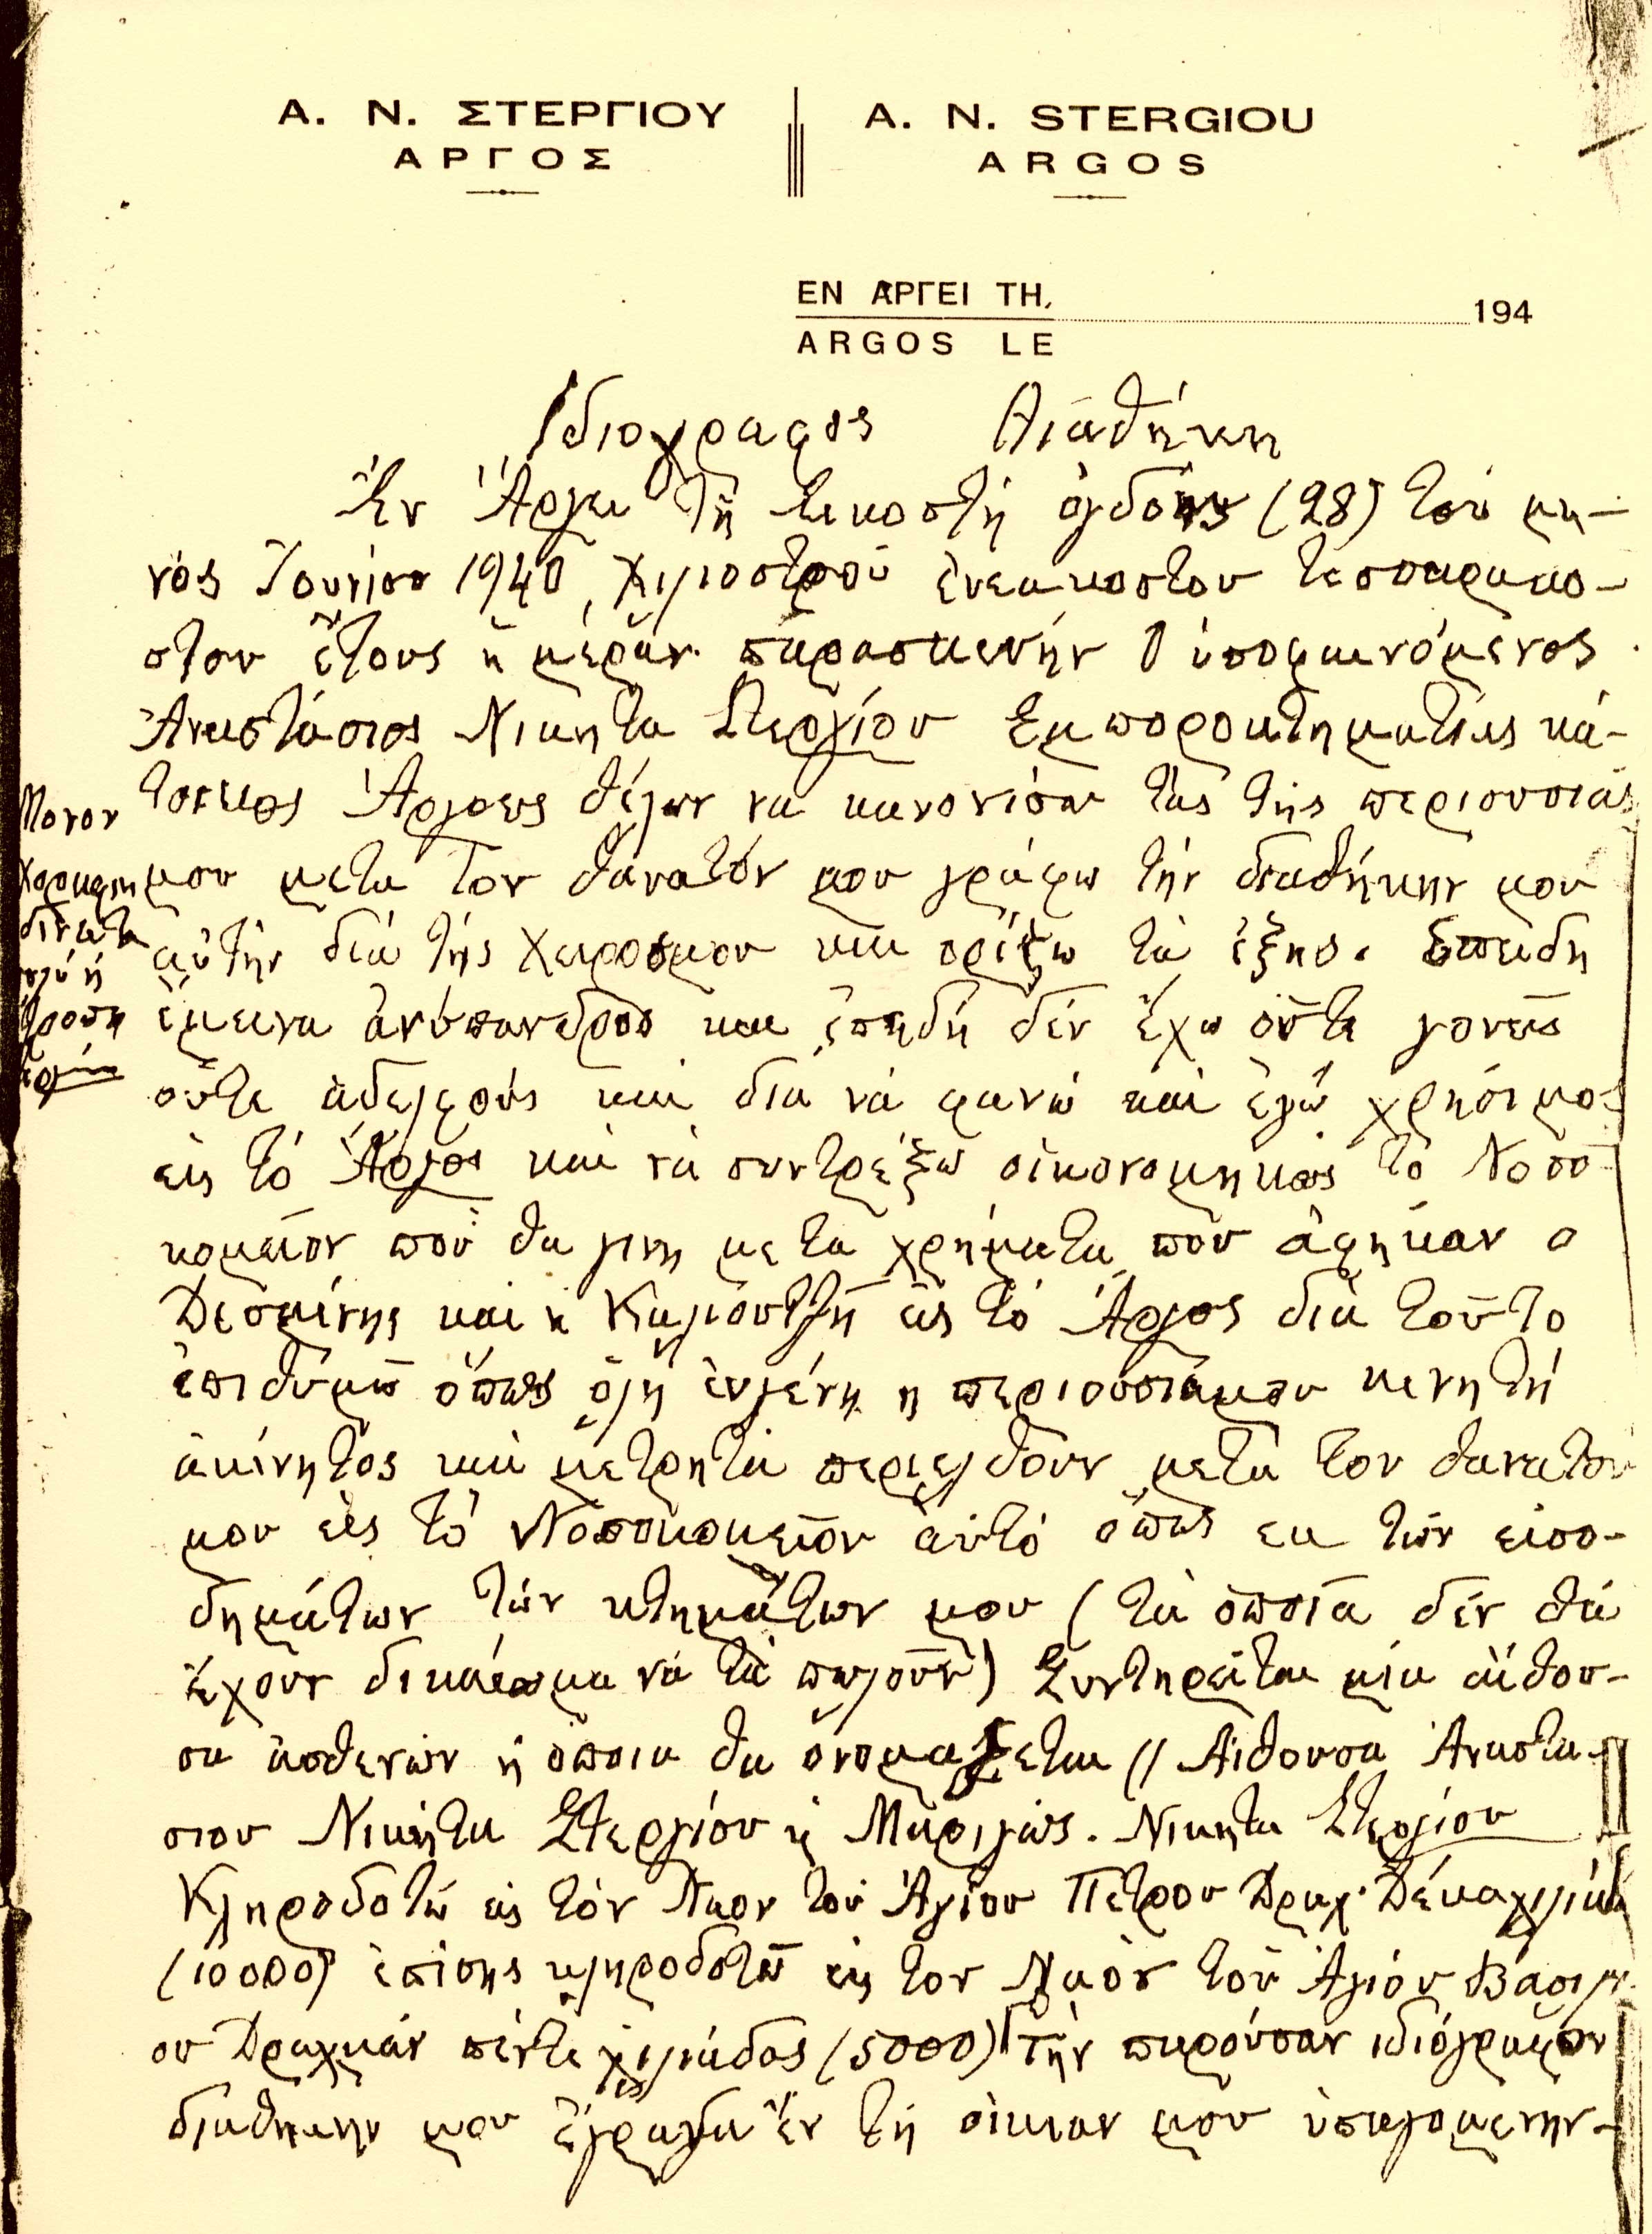 Α. Ν. ΣΤΕΡΓΙΟΥ
ΑΡΓΟΣ
A. N. STERGIOU
ARGOS
ΕΝ ΑΡΓΕΙ ΤΗ, 194
ARGOS LE
Ιδιογραφος Διαθήκη
Ἐν Ἄργει Τῇ εικοστή ὀγδόης (28) τοῦ μη-
νός Ἰουνίου 1940, Χιλιοστοῦ ἐνεακοστου τεσσαρακο-
στου ἔτους ἡμέραν παρασκευήν Ο ὑποφαινόμενος
Ἀναστάσιος Νικητα Στεργίου Εμποροκτηματίας κά-
τοικος Ἄργους θέλων να κανονίσω τας τῆς περιουσιας
μου μετα τον θάνατόν μου γράφω τήν διαθήκην μου
αὐτήν διά τῆς χειροσμου και ορίζω τὰ ἑξῆς. Επειδη
ἔμεινα ἀνύπανδρος και ἐπηδή δέν ἔχω οὔτε γονεῖς
οὔτε ἀδελφούς και δια νά φανώ καί ἐγώ χρήσιμος
εις τό Ἄργος καί νά συντρέξω οἰκονομηκῶς τό Νοσο-
κομεῖον ποὺ θα γινη με τα χρήματα που ἀφηκαν ο
Δεσμίνης και η Καλιόντζή εἰς τό Ἄργος διά τοῦτο
ἐπιθυμῶ ὅπως ὅλη ἐνγένη η περιουσιάμου κενητή
ἀκίνητος και μετρητά περιελθουν μετὰ τον θανατον
μου εἰς τό Νοσοκομεῖον ἀυτό ὅπως εκ τῶν εἰσο-
δημάτων τῶν κτημάτων μου (τὰ ὁποῖα δέν θά
ἔχουν δικαίωμα νά τά πωλοῦν) Συντηρεῖται μία αἴθου-
σα ἀσθενῶν ἡ ὁποια θα ὀνομαζεται // Αἰθουσα Αναστα-
σιου Νικήτα Στεργίου ἡ Μαριγῶς. Νικητα Στεργίου
Κληροδοτῶ εἰς τόν Ναον τοῦ Ἁγίου Πετρου Δραχ. Δέκαχιλιάδ
(10000) ἐπίσης κληροδοτῶ εἰς τον Ναὸν τοῦ Ἁγιόυ Βασιλι
ου Δραχμάς πέντε χιλιάδας (5000) Τήν παρούσαν ιδιόγραφον
διαθηκην μου ἔγραψα ἐν τῇ οἰκιαν μου
Μονον